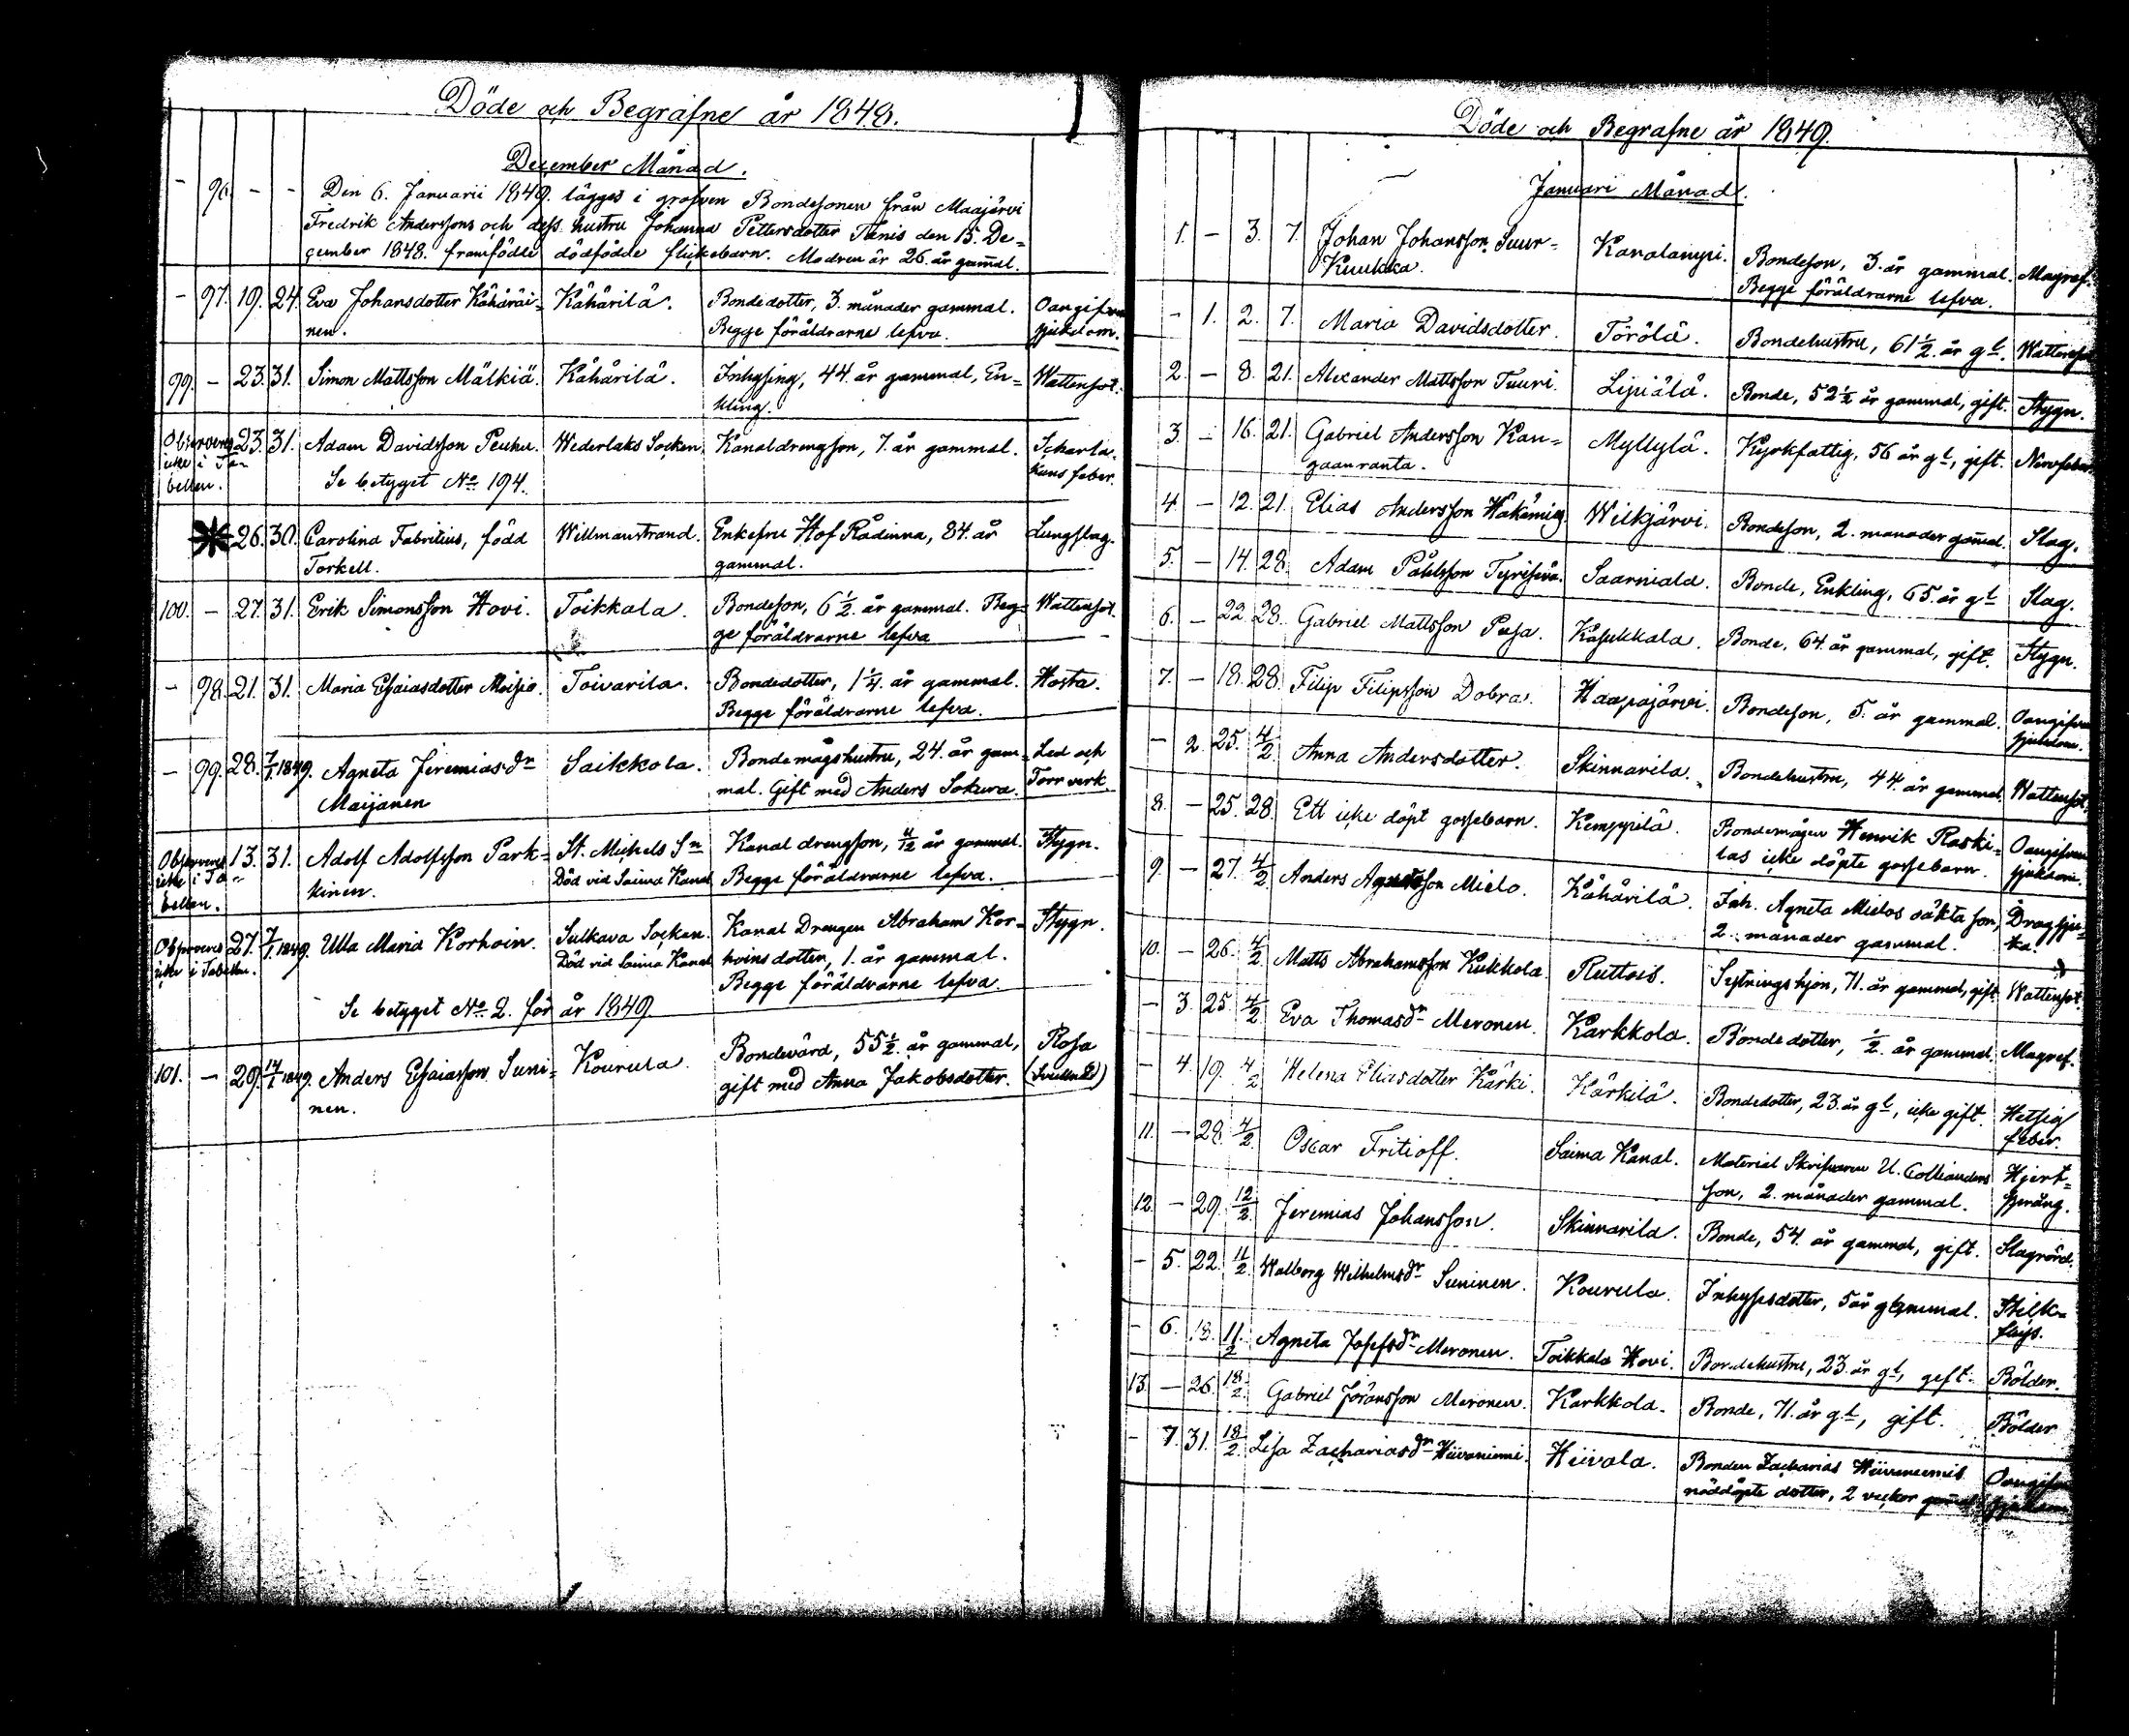 Döde och Begrafne år 1848.
December Månad.
- 96. - - Den 6. Januarii 1849. lägges i grafven Bondesonen från Maajärvi
Fredrik Anderssons och dess hustru Johanna Pettersdotter Tunis den 15. De=
cember 1848. framfödde dödfödde flickebarn. Modren är 26. år gam̄al.
- 97. 19. 24. Eva Johansdotter Kähäräi= Kähärilä. Bondedotter, 3. månader gammal. Oangifven
nen. Begge föräldrarne lefva. sjukdom.
99. - 23. 31. Simon Mattsson Mälkiä. Kähärilä. Inhysing, 44. år gammal, En= Wattensot.
kling.
Observeras 23. 31. Adam Davidsson Peuhu. Wederlaks Socken. Kanaldrengson, 7. år gammal. Scharla=
icke i Ta= Se betyget No 194. kans feber.
bellen.
26. 30. Carolina Fabritius, född Willmanstrand. Enkefru Hof Rådinna, 84. år Lungslag.
Torkell. gammal.
100. - 27. 31. Erik Simonsson Hovi. Toikkala. Bondeson, 6 1/2. år gammal. Beg= Wattensot.
ge föräldrarne lefva
- 98. 21. 31. Maria Esaiasdotter Moisio. Toivarila. Bondedotter, 1 1/4. år gammal. Hosta.
Begge föräldrarne lefva.
- 99. 28. 7/1. 1849. Agneta Jeremiasdr Saikkola. Bondemågshustru, 24. år gam= Led och
Maijanen mal. Gift med Anders Sokura. Torr verk
Observeras 13. 31. Adolf Adolfsson Park= St. Michels Sn Kanal drengson, 4/12 år gammal. Stygn.
icke i Ta= kinen. Död vid Saima Kanal Begge föräldrarne lefva.
bellen.
Observeras 27. 7/1. 1849. Ulla Maria Korhoin. Sulkava Socken. Kanal Drengen Abraham Kor= Stygn.
icke i Tabellen. Död vid Saima Kanal hoins dotter, 1. år gammal.
Begge föräldrarne lefva.
Se betyget No 2. för år 1849
101. - 29. 14/1. 1849. Anders Esaiasson Suni= Kourula. Bondevärd, 55 1/2. år gammal, Rosa
nen. gift med Anna Jakobsdotter.
Döde och Begrafne år 1849.
Januari Månad.
1. - 3. 7. Johan Johansson Suur= Kanalanypi. Bondeson, 3. år gammal. Magref.
Kuukka. Begge föräldrarne lefva.
- 1. 2. 7. Maria Davidsdotter. Törölä. Bondehustru, 61 1/2. år gl. Wattensot
2. - 8. 21. Alexander Mattsson Tuuri. Lyijälä. Bonde, 52 1/2 år gammal, gift. Stygn.
3. - 16. 21. Gabriel Andersson Kan= Myllylä. Kyrkfattig, 56 år gl, gift. Nervfeber.
gaanranta.
4. - 12. 21. Elias Andersson Häkämies Wilkjärvi. Bondeson, 2. månader gam̄al. Slag.
5. - 14. 28. Adam Påhlsson Tyrisevä. Saarniala. Bonde, Enkling, 65. år gl Slag.
6. - 22. 28. Gabriel Mattsson Pusa. Kasukkala. Bonde, 64. år gammal, gift. Stygn.
7. - 18. 28. Filip Filipsson Dobra. Haapajärvi. Bondeson, 5. år gammal. Oangifven
sjukdom.
- 2. 25. 4/2 Anna Andersdotter. Skinnarila. Bondehustru, 44. år gammal. Wattensot.
8. - 25. 28. Ett icke döpt gossebarn. Kemppilä. Bondemågen Henrik Raski= Oangifven
las icke döpte gossebarn. sjukdom.
9. - 27. 4/2 Anders Agnetasson Mielo. Kähärilä. Inh. Agneta Mielos oäkta son, Dragsju=
2. månader gammal. ka.
10. - 26. 4/2 Matts Abrahamsson Kukkola. Ruttois. Sytningshjon, 71. år gammal, gift. Wattensot.
- 3. 25. 4/2 Eva Thomasdr Meronen. Karkkola. Bondedotter, 1/2. år gammal. Magref.
- 4. 19. 4/2 Helena Eliasdotter Kärki. Kärkilä. Bondedotter, 23. år gl, icke gift. Hetsig
feber.
11. - 28. 4/2 Oscar Fritioff. Saima Kanal. Material Skrifvaren U. Collianders Hjert=
son, 2. månader gammal. språng.
12. - 29. 12/2. Jeremias Johansson. Skinnarila. Bonde, 54. år gammal, gift. Slagrörd.
- 5. 22. 11/2. Walborg Wilhelmsdr Suninen. Kourula. Inhysesdotter, 5 år gammal. Stick=
flyss.
- 6. 18. 11/2 Agneta Josefsdr Meronen. Toikkala Hovi. Bondehustru, 23. år gl, gift. Bölder.
13. - 26. 18/2. Gabriel Jöransson Meronen. Karkkola. Bonde, 71. år gl, gift. Bölder
- 7. 31. 18/2. Lisa Zachariasdr Hiivaniemi. Hiivala. Bonden Zacharias Hiivaniemis Oangifven
nöddöpte dotter, 2 veckor gam̄al. sjukdom